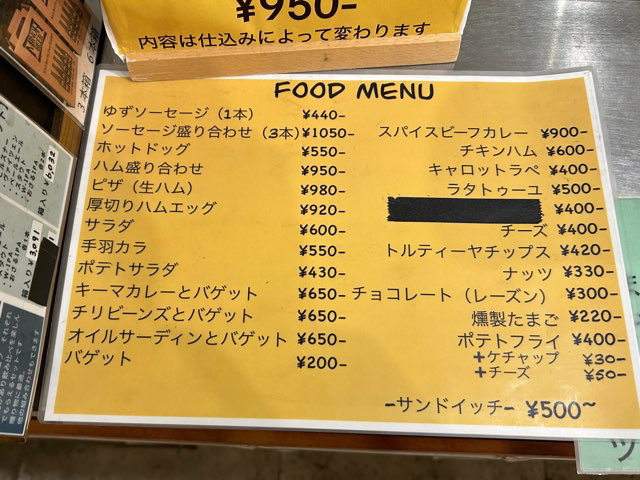 ¥950-
内容は仕込みによって変わります
FOOD MENU
ゆずソーセージ（1本） ¥440-
ソーセージ盛り合わせ（3本） ¥1050-
ホットドッグ ¥550-
ハム盛り合わせ ¥950-
ピザ（生ハム） ¥980-
厚切りハムエッグ ¥920-
サラダ ¥600-
手羽カラ ¥550-
ポテトサラダ ¥430-
キーマカレーとバゲット ¥650-
チリビーンズとバゲット ¥650-
オイルサーディンとバゲット ¥650-
バゲット ¥200-
スパイスビーフカレー ¥900-
チキンハム ¥600-
キャロットラペ ¥400-
ラタトゥーユ ¥500-
¥400-
チーズ ¥400-
トルティーヤチップス ¥420-
ナッツ ¥330-
チョコレート（レーズン） ¥300-
燻製たまご ¥220-
ポテトフライ ¥400-
+ケチャップ ¥30-
+チーズ ¥50-
-サンドイッチ- ¥500~
3本箱 6本箱
箱入り¥6,032
箱入り¥3,091
ツ